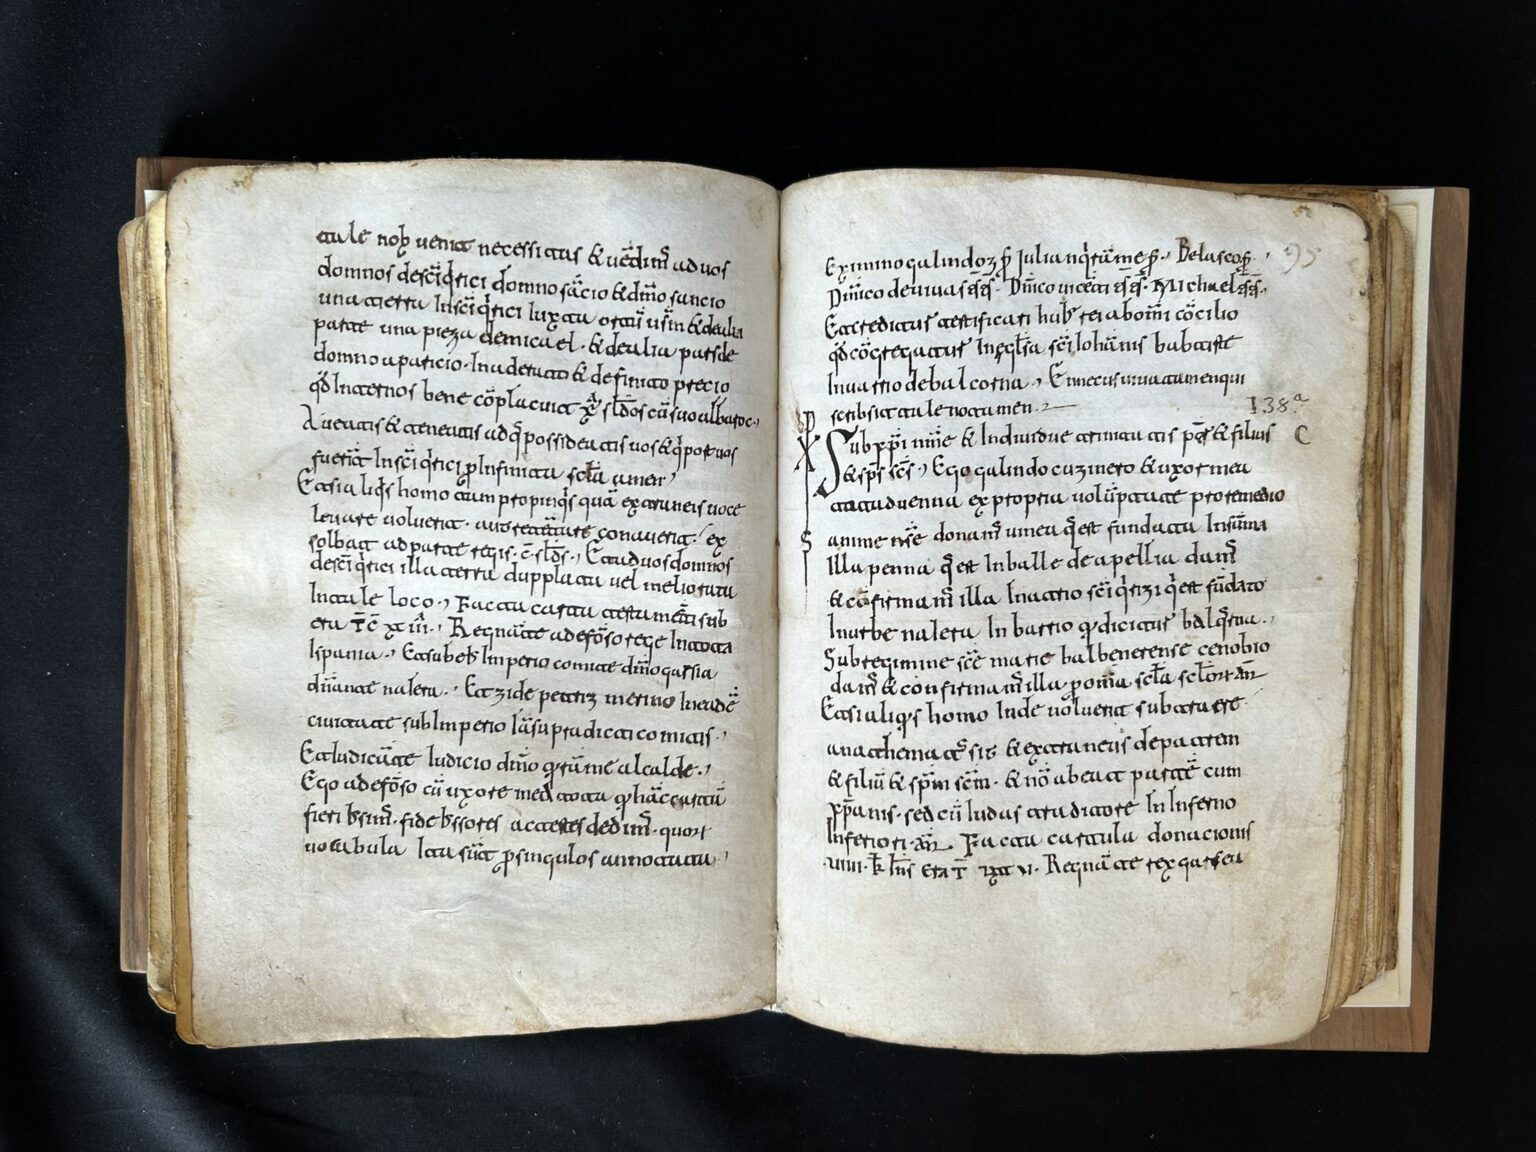 tale nob̅ uenit necessitas & uēdim̅ ad uos
domnos de sc̅i q̅rici domno sācio & dm̅o sancio
una terra In sc̅i q̅rici Iuxta &de alia
parte una pieza de micael · & de alia pars de
domno apaticio · In aderato & definito precio
q̅d Inter nos bene cōplacuit sl̅dos cū suo alboroc ·
Aueatis & teneatis ad q̅ possideatis uos & q̅ por uos
fuerīt In sc̅i q̅rici p̱ Infinita scl̅a amen
Et si aliq̅s homo tam propinq̅s quā extraneis uoce
leuare uoluerit · aut conauerit · ex
soluat ad parte regis · c̅ · sl̅ds · Et ad uos domnos
de sc̅i q̅rici illa terra dupplata uel meliorata
In tale loco · Facta carta testamēti sub
era T̅ C̅ x iii · Regnāte adefōso rege In tota
Ispania · Et sub eius Imperio comite dm̅o garsia
dn̅ante naiera · Et zide petriz merino In eadē
ciuitate sub Imperio Ia̅ supradicti comitis ·
Et Iudicāte Iudicio dm̅o q̅tāme alcalde ·
Ego adefōso cū uxore mea tota q̱ hāc cartā
fieri Iussim̅ · fidebssores ac testes dedim̅ · quor̅
uocabula Ita sūt p̱ singulos annotata ·
eximino galindoz p̅r̅ Iulian q̅tāme p̅r̅ · Belasco p̅r̅ ·
Dm̅ico de riua s̅s̅ · Dm̅ico uicēti s̅s̅ · Michael s̅s̅ ·
95
Et predictus testificati hui̅ rei a boni̅ cōcilio
q̅d cōgregatus In egl̅sia sc̅i Iohānis babtiste
In uarrio de balcorna · Ennecus
scribsit tale notamen ·
138.ª
Sub xp̅i nn̅e & Indiuidue trinitatis pa̅s & filius C
& sp̅s sc̅s · Ego galindo cuzineto & uxor mea
tutaduenna ex propria uolūptate pro remedio
anime nr̅e donam̅ uinea q̅ est fundata In sūma
illa penna q̅ est In balle de apellia dam̅
& cōfirmam̅ illa In atrio sc̅i q̅rizi q̅ est fūdato
In urbe naiera In barrio q̱ dicitur balq̅rna ·
Sub regimine sc̅e marie balbenerense cenobio
dam̅ & confirmam̅ illa p̱ om̅ia scl̅a scl̅or̅ am̅
Et si aliq̅s homo Inde uoluerit subtraere
anathema tus sit & extraneus de patrem
& filiū & sp̅m sc̅m · & nō abeat partē cum
xp̅anis · sed cū Iudas traditore In Inferno
Inferiori am̅ · Facta cartula donacionis
uiiii · kl̅ Iu̅s era T̅ v · Regnāte rex garsea